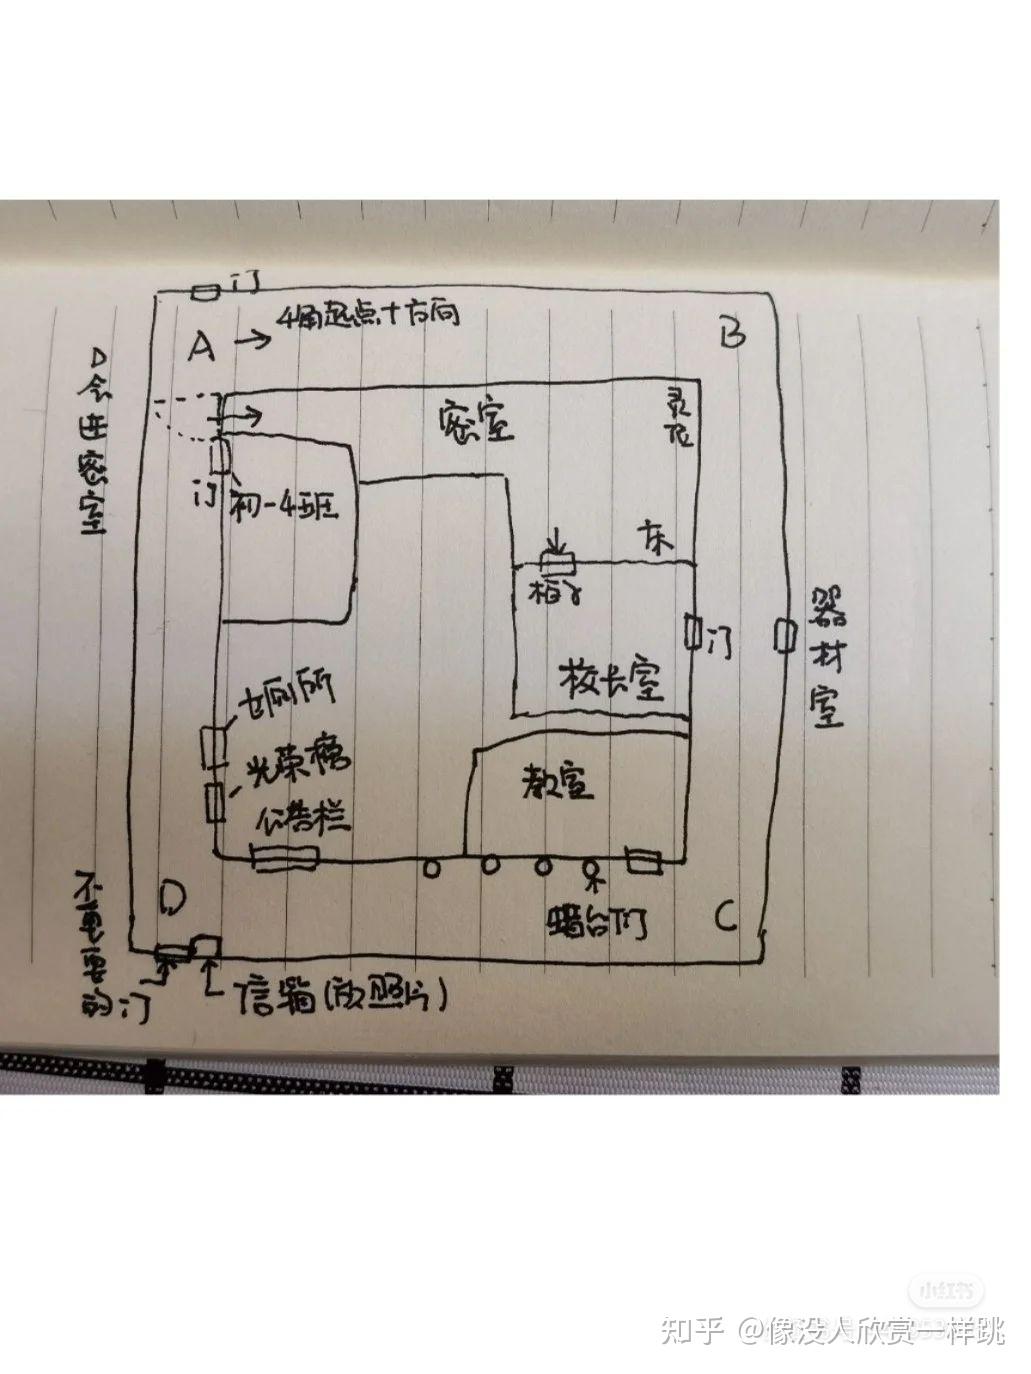 门
4角起点+方向
A →
B
D会进密室
密室
灵位
门
初一4班
床
柜子
门
器材室
校长室
女厕所
光荣榜
教室
公告栏
D
蜡台
门
C
不重要的门
信箱(放照片)
小红书
知乎 @像没人欣赏一样跳